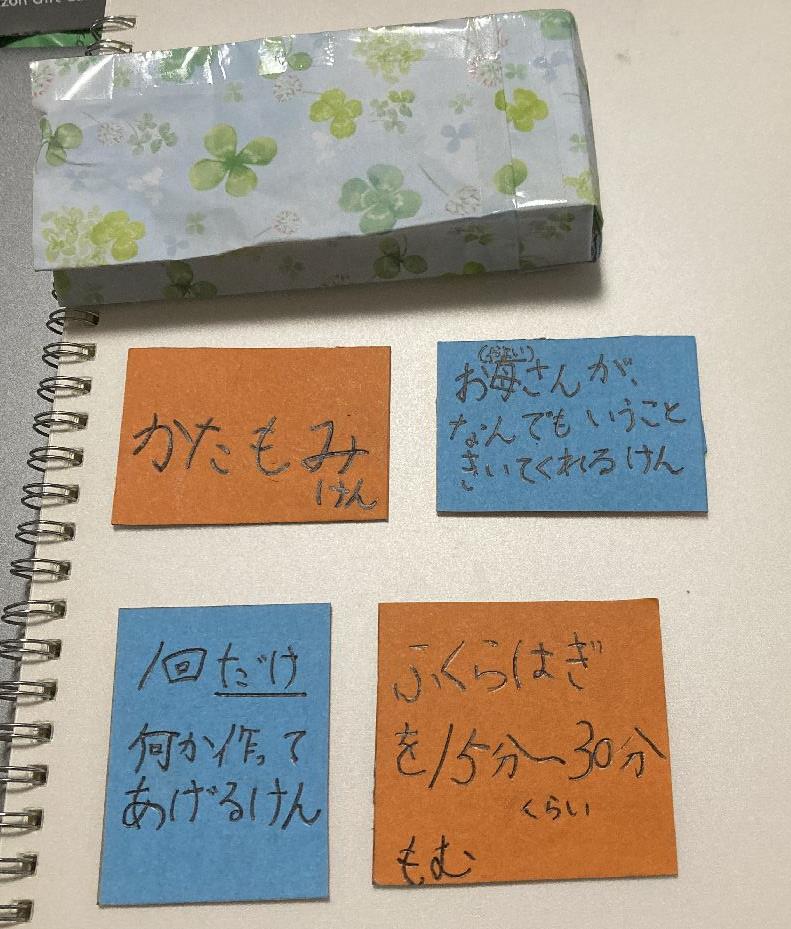 zon Gift Ca
かたもみ
けん
お母さんが、
なんでもいうこと
きいてくれるけん
1回だけ
何か作って
あげるけん
ふくらはぎ
を15分〜30分
くらい
もむ